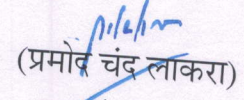 (प्रमोद चंद लाकरा)